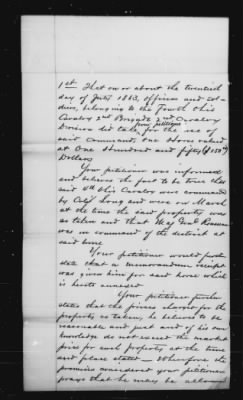 1st That on or about the twentieth
day of July 1863, officers and sol-
diers, belonging to the Fourth Ohio
Cavalry 2nd Brigade 2nd Cavalry
Division did take from petitioner for the use of
said command, one Horse valued
at One Hundred and fifty ($150)
Dollars
Your petitioner was informed
and believes the fact to be true that
said 4th Ohio Cavalry were commanded
by Col Long and were on March
at the time the said property was
so taken and that Maj Genl
was in command of the district at
said
Your petitioner would further
state that a memorandum receipt
was given him for said horse which
is hereto annexed
Your petitioner further
states that the prices charged for the
property so taken, he believes to be
reasonable and just and of his own
knowledge do not exceed the market
price for such property at the time
and place stated — Wherefore the
premises considered your petitioner
prays that he may be allowed